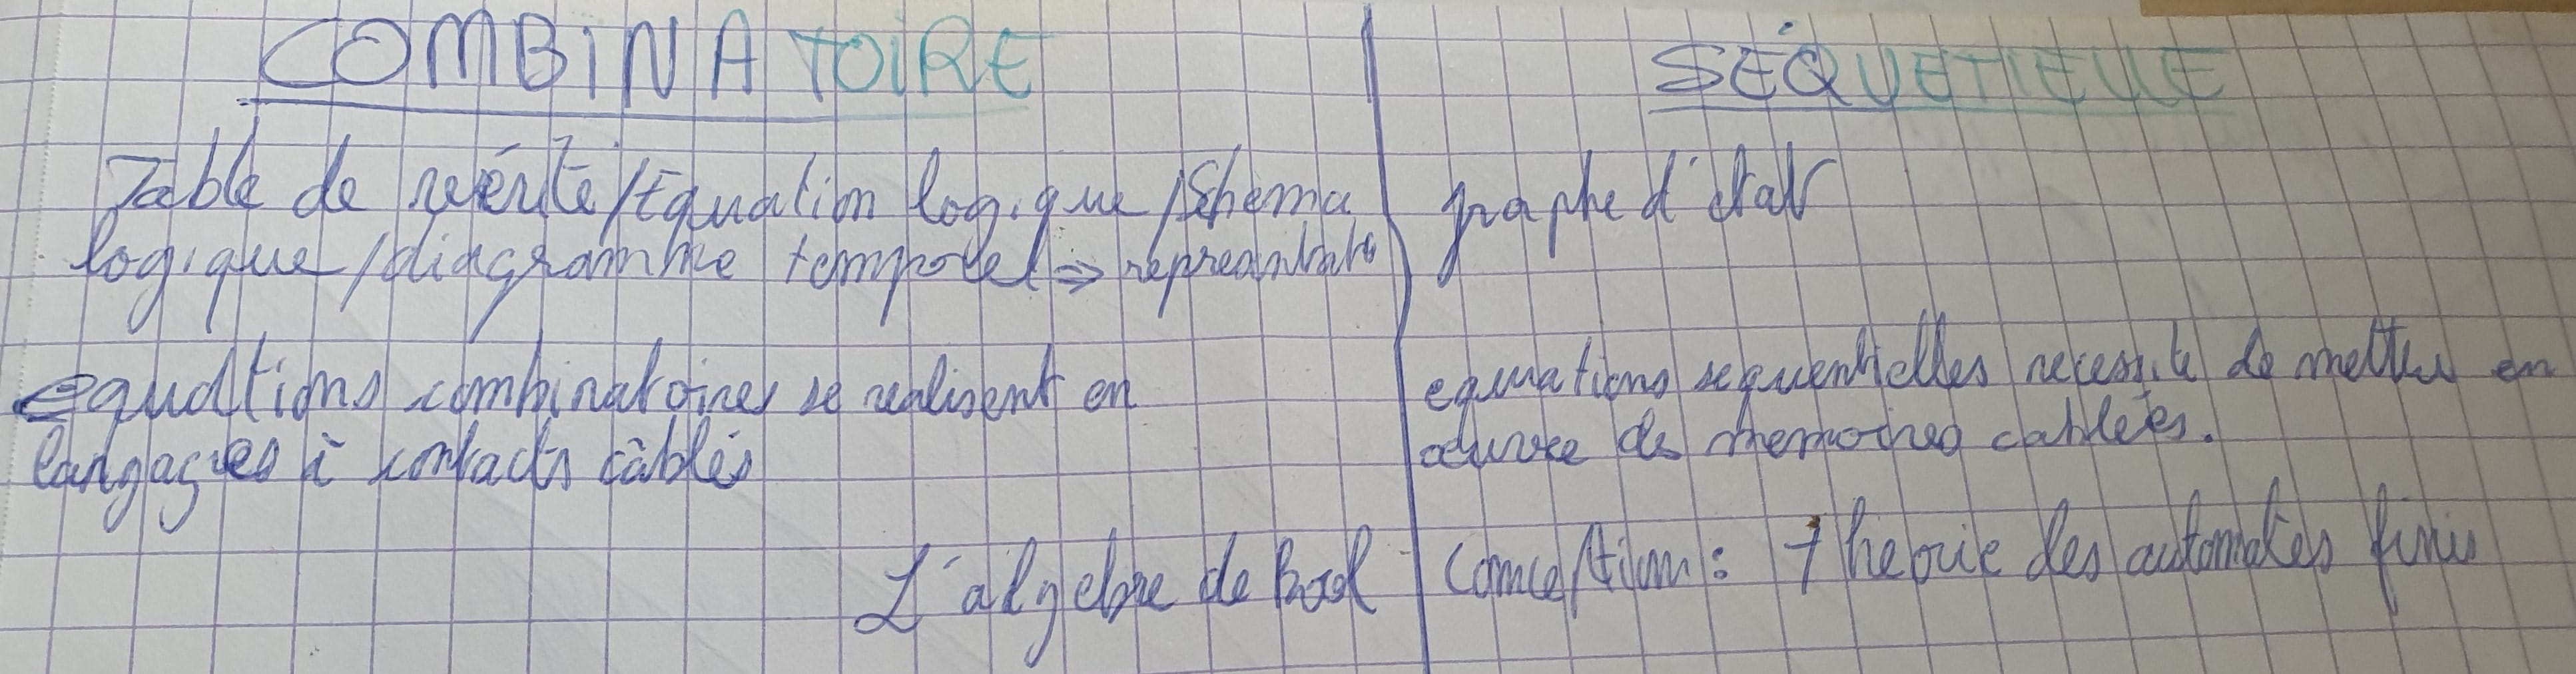 COMBINATOIRE
Table de vérité/Equation logique/Shema
logique/diagramme temporel => 
equations combinatoires se realisent en
langages à contacts câblés
L'algebre de Bool
SÉQUETIELLE
graphe d'état
equations sequentielles necessite de mettre en
œuvre des memoires cablées.
Conception : Theorie des automates finis